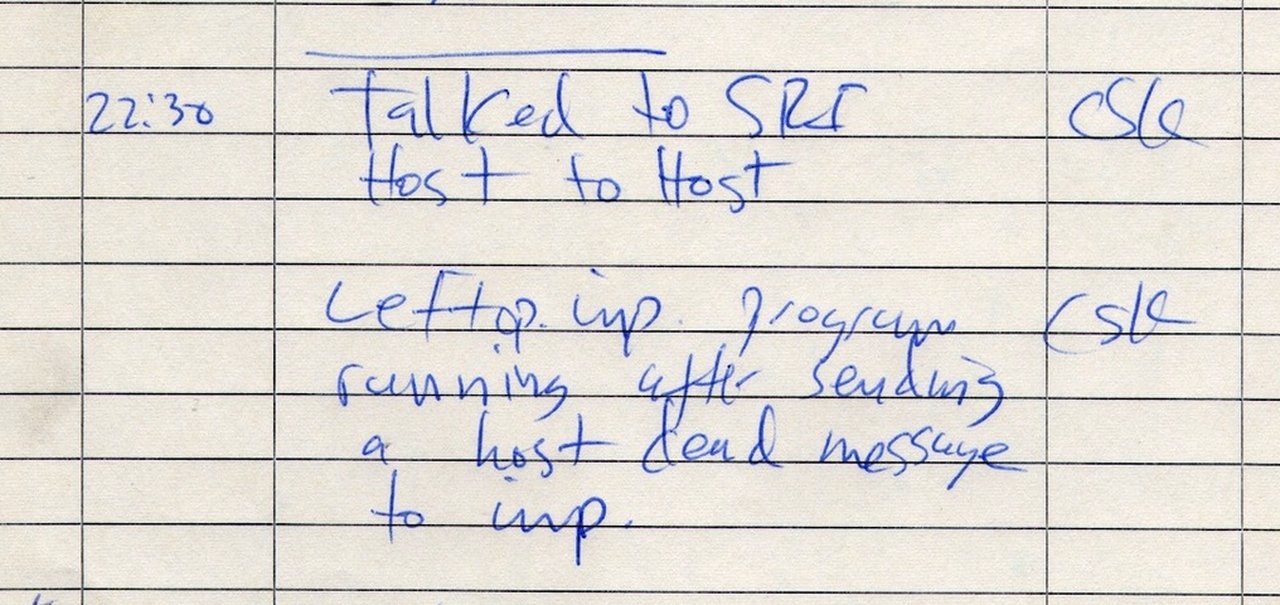 22:30 Talked to SRI CSK
Host to Host
Left op. imp. program CSK
running after sending
a host dead message
to imp.